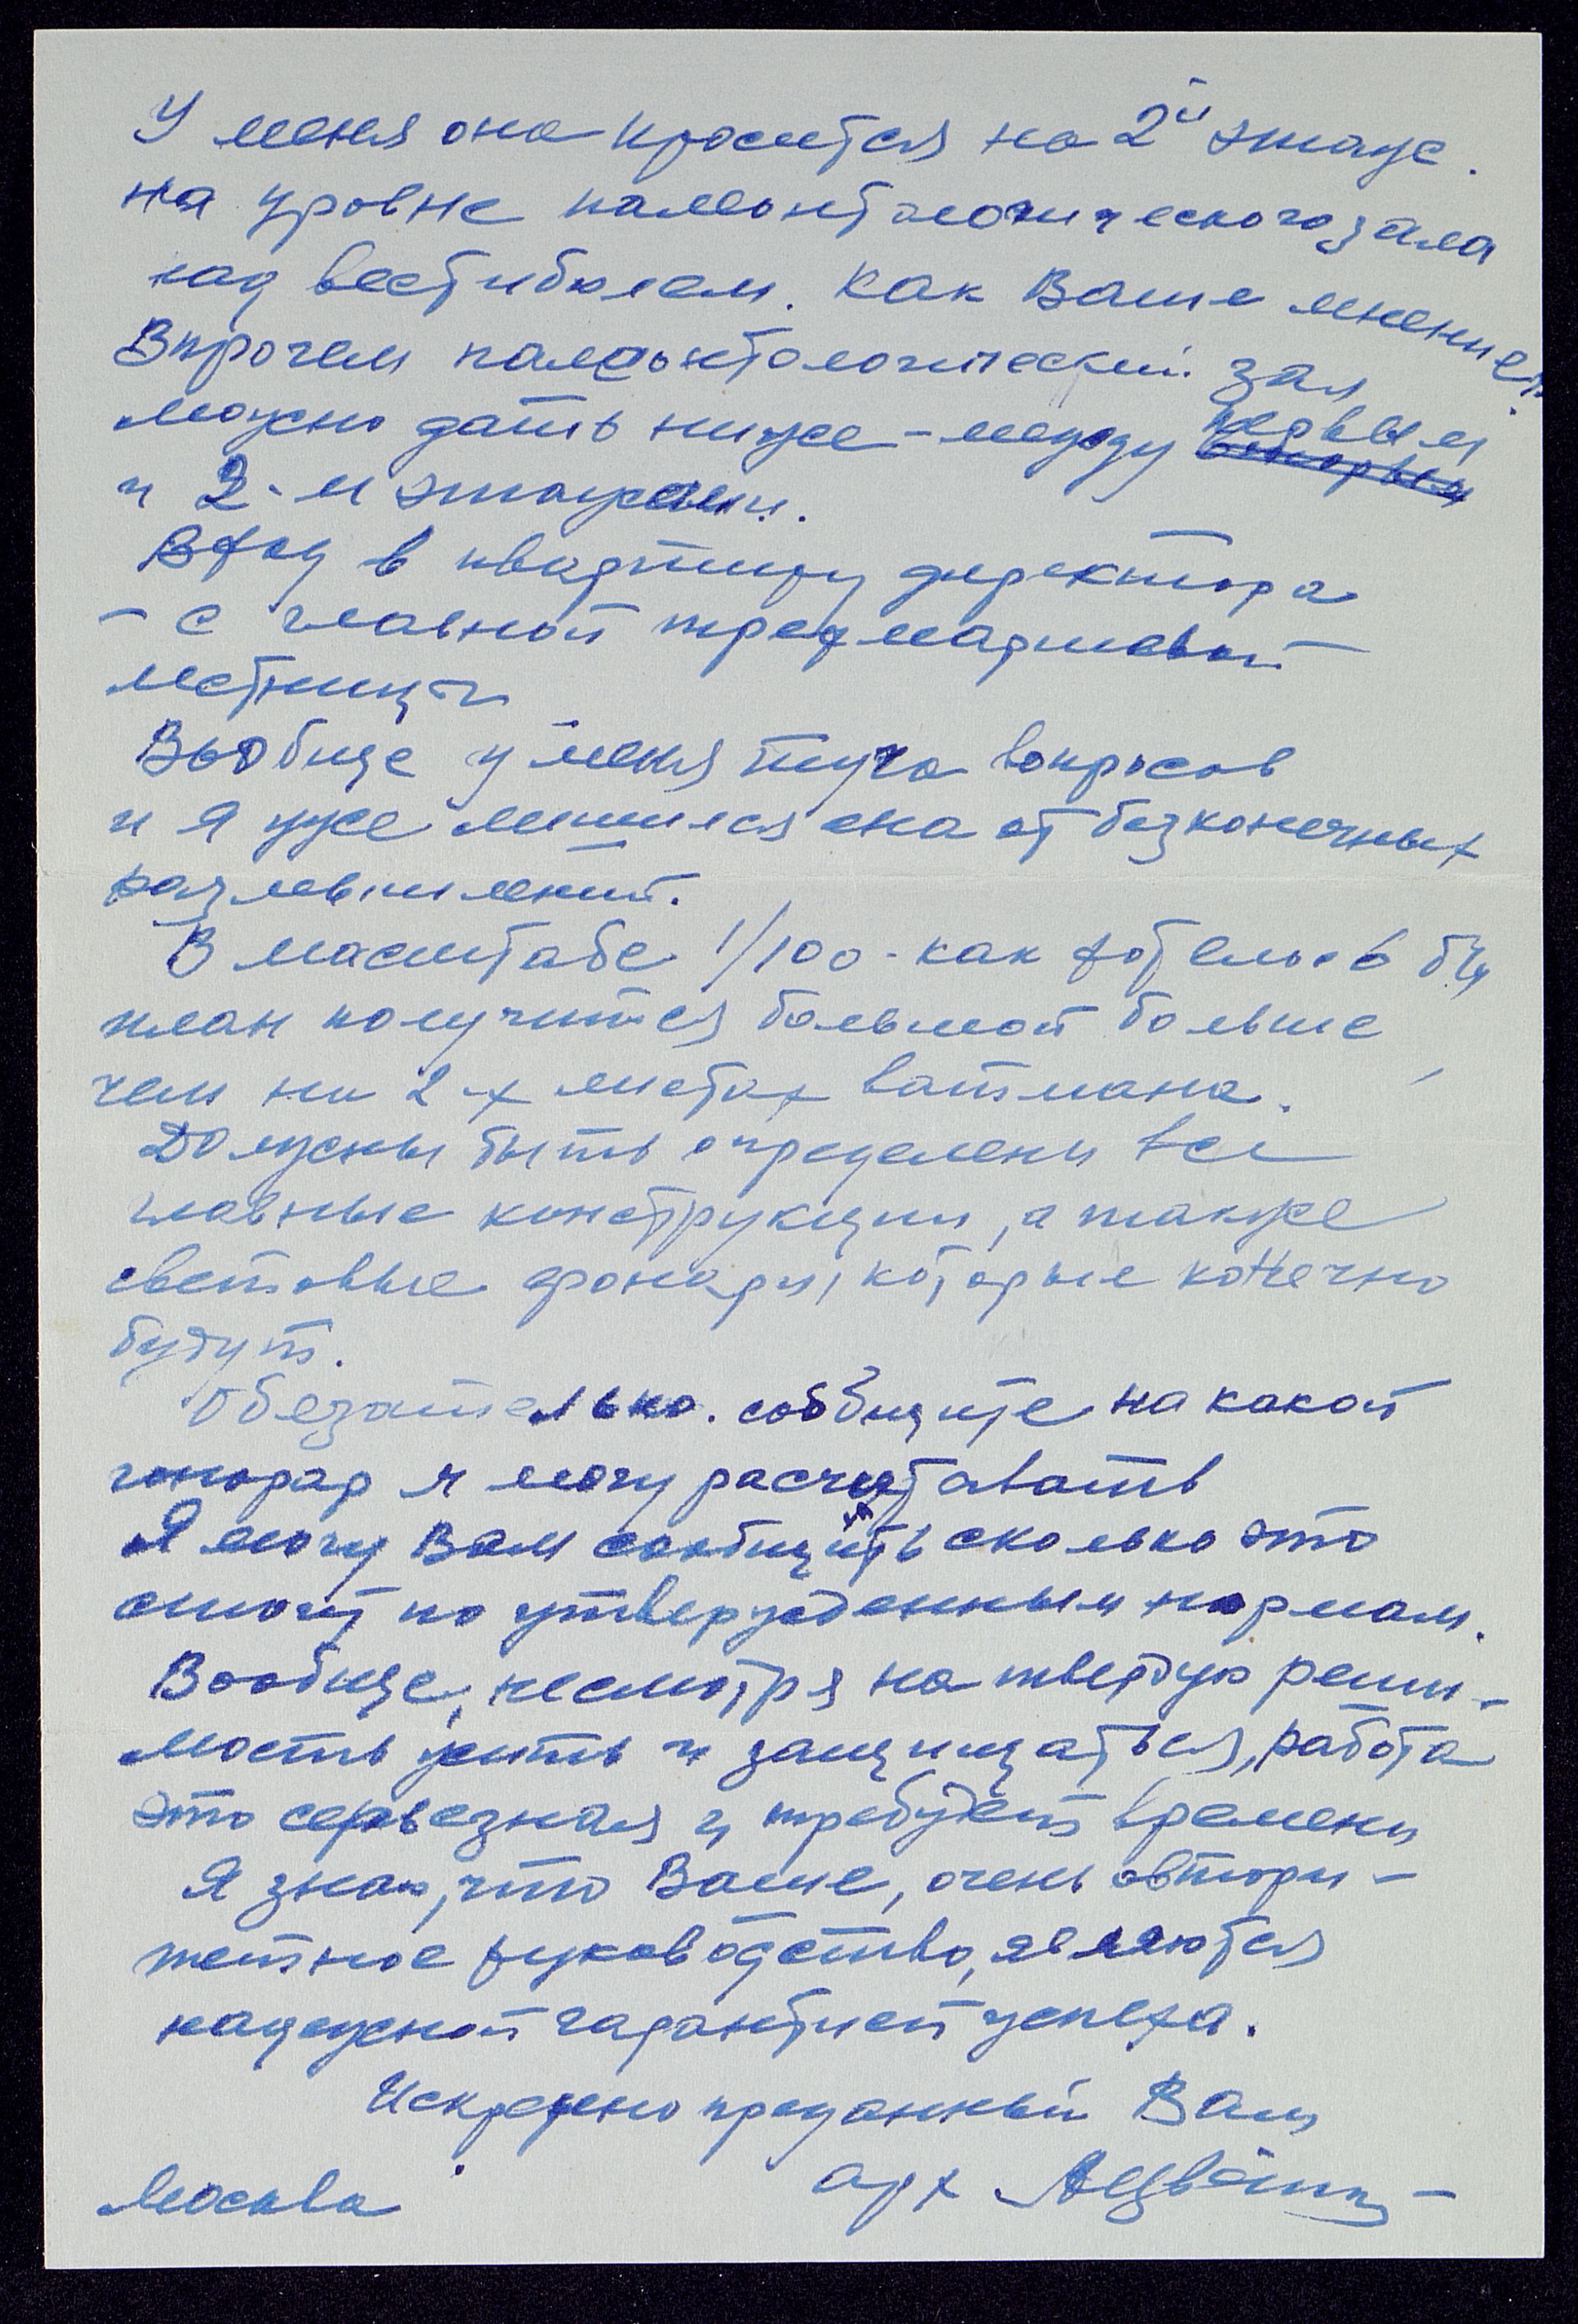 У меня она просится на 2й этаже.
на уровне палеонтологического зала
над вестибюлем. Как Ваше мнение?
Впрочем палеонтологический зал
можно дать ниже – между первым
и 2-м этажами.
Вход в квартиру директора
– с главной трехмаршевой
лестницы
Вообще у меня туча вопросов
и я уже лишился сна от безконечных
размышлений.
В масштабе 1/100 - как хотелось бы
план получится большой больше
чем на 2-х листах ватмана.
Должны быть определены все
главные конструкции, а также
световые фонари, которые конечно
будут.
Обязательно. сообщите на какой
гонорар я могу расчитавать
Я могу Вам сообщить сколько это
стоит по утвержденным нормам.
Вообще, несмотря на твердую реши-
мость жить и защищаться, работа
это серьезная и требует времени
Я знаю, что Ваше, очень автори-
тетное руководство, являются
надежной гарантией успеха.
Искренно преданный Вам
арх
Москва